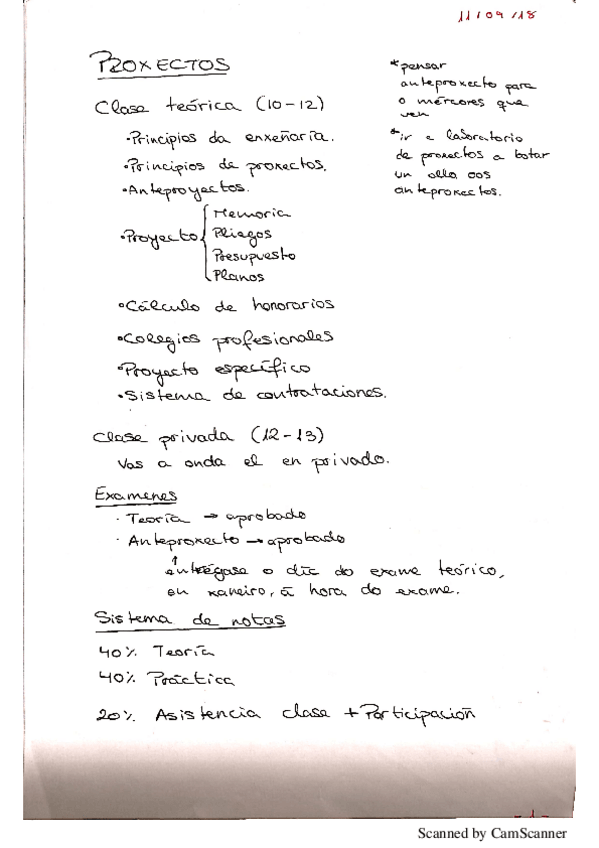 11/09/18
PROXECTOS
*pensar
anteproxecto para
o mércores que
ven
*ir a laboratorio
de proxectos a botar
un ollo aos
anteproxectos.
Clase teórica (10-12)
•Principios da enxeñaría.
•Principios de proxectos.
•Anteproyectos.
•Proyecto { Memoria
Pliegos
Presupuesto
Planos
•Cálculo de honorarios
•Colegios profesionales
•Proyecto específico
•Sistema de contrataciones.
Clase privada (12-13)
Vas a onda el en privado.
Examenes
· Teoría → aprobado
· Anteproxecto → aprobado
↑
entrégase o día do exame teórico,
en xaneiro, á hora do exame.
Sistema de notas
40% Teoría
40% Práctica
20% Asistencia clase + Participación
-1-
Scanned by CamScanner